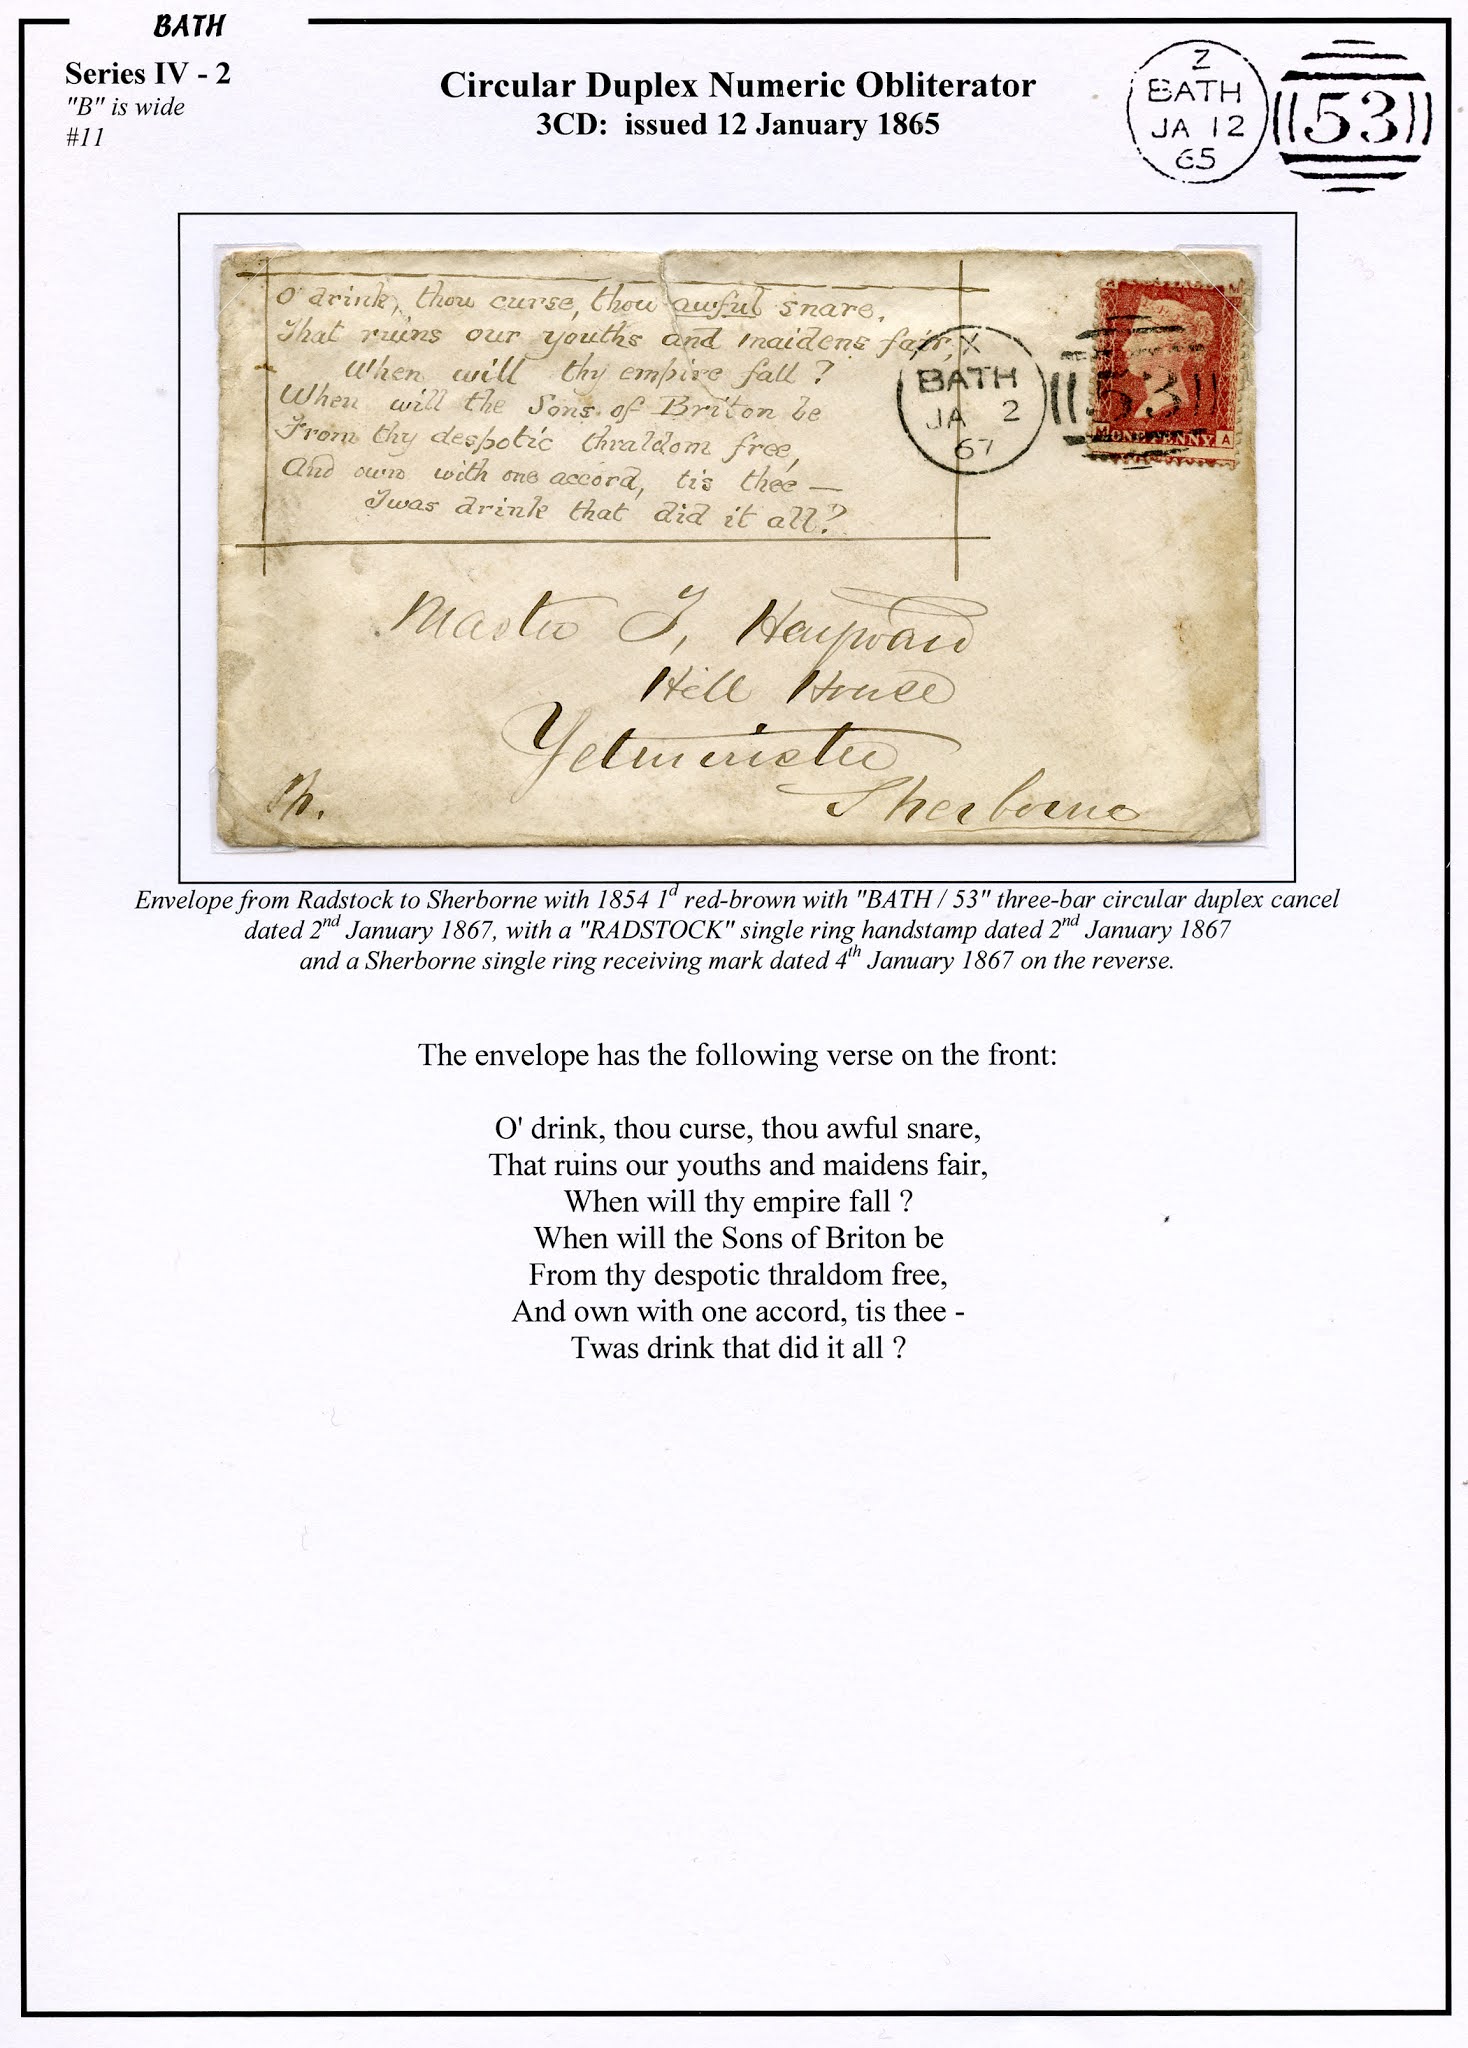 BATH
Series IV - 2
"B" is wide
#11
Circular Duplex Numeric Obliterator
3CD: issued 12 January 1865
Z
BATH
JA 12
65
53
O' drink, thou curse, thou awful snare.
That ruins our youths and maidens fair,
When will thy empire fall ?
When will the Sons of Briton be
From thy despotic thraldom free,
And own with one accord, tis thee —
Twas drink that did it all ?
X
BATH
JA 2
67
53
M
M ONE PENNY A
Master T, Hayward
Hill House
Yetminster
Sherborne
Envelope from Radstock to Sherborne with 1854 1d red-brown with "BATH / 53" three-bar circular duplex cancel
dated 2nd January 1867, with a "RADSTOCK" single ring handstamp dated 2nd January 1867
and a Sherborne single ring receiving mark dated 4th January 1867 on the reverse.
The envelope has the following verse on the front:
O' drink, thou curse, thou awful snare,
That ruins our youths and maidens fair,
When will thy empire fall ?
When will the Sons of Briton be
From thy despotic thraldom free,
And own with one accord, tis thee -
Twas drink that did it all ?